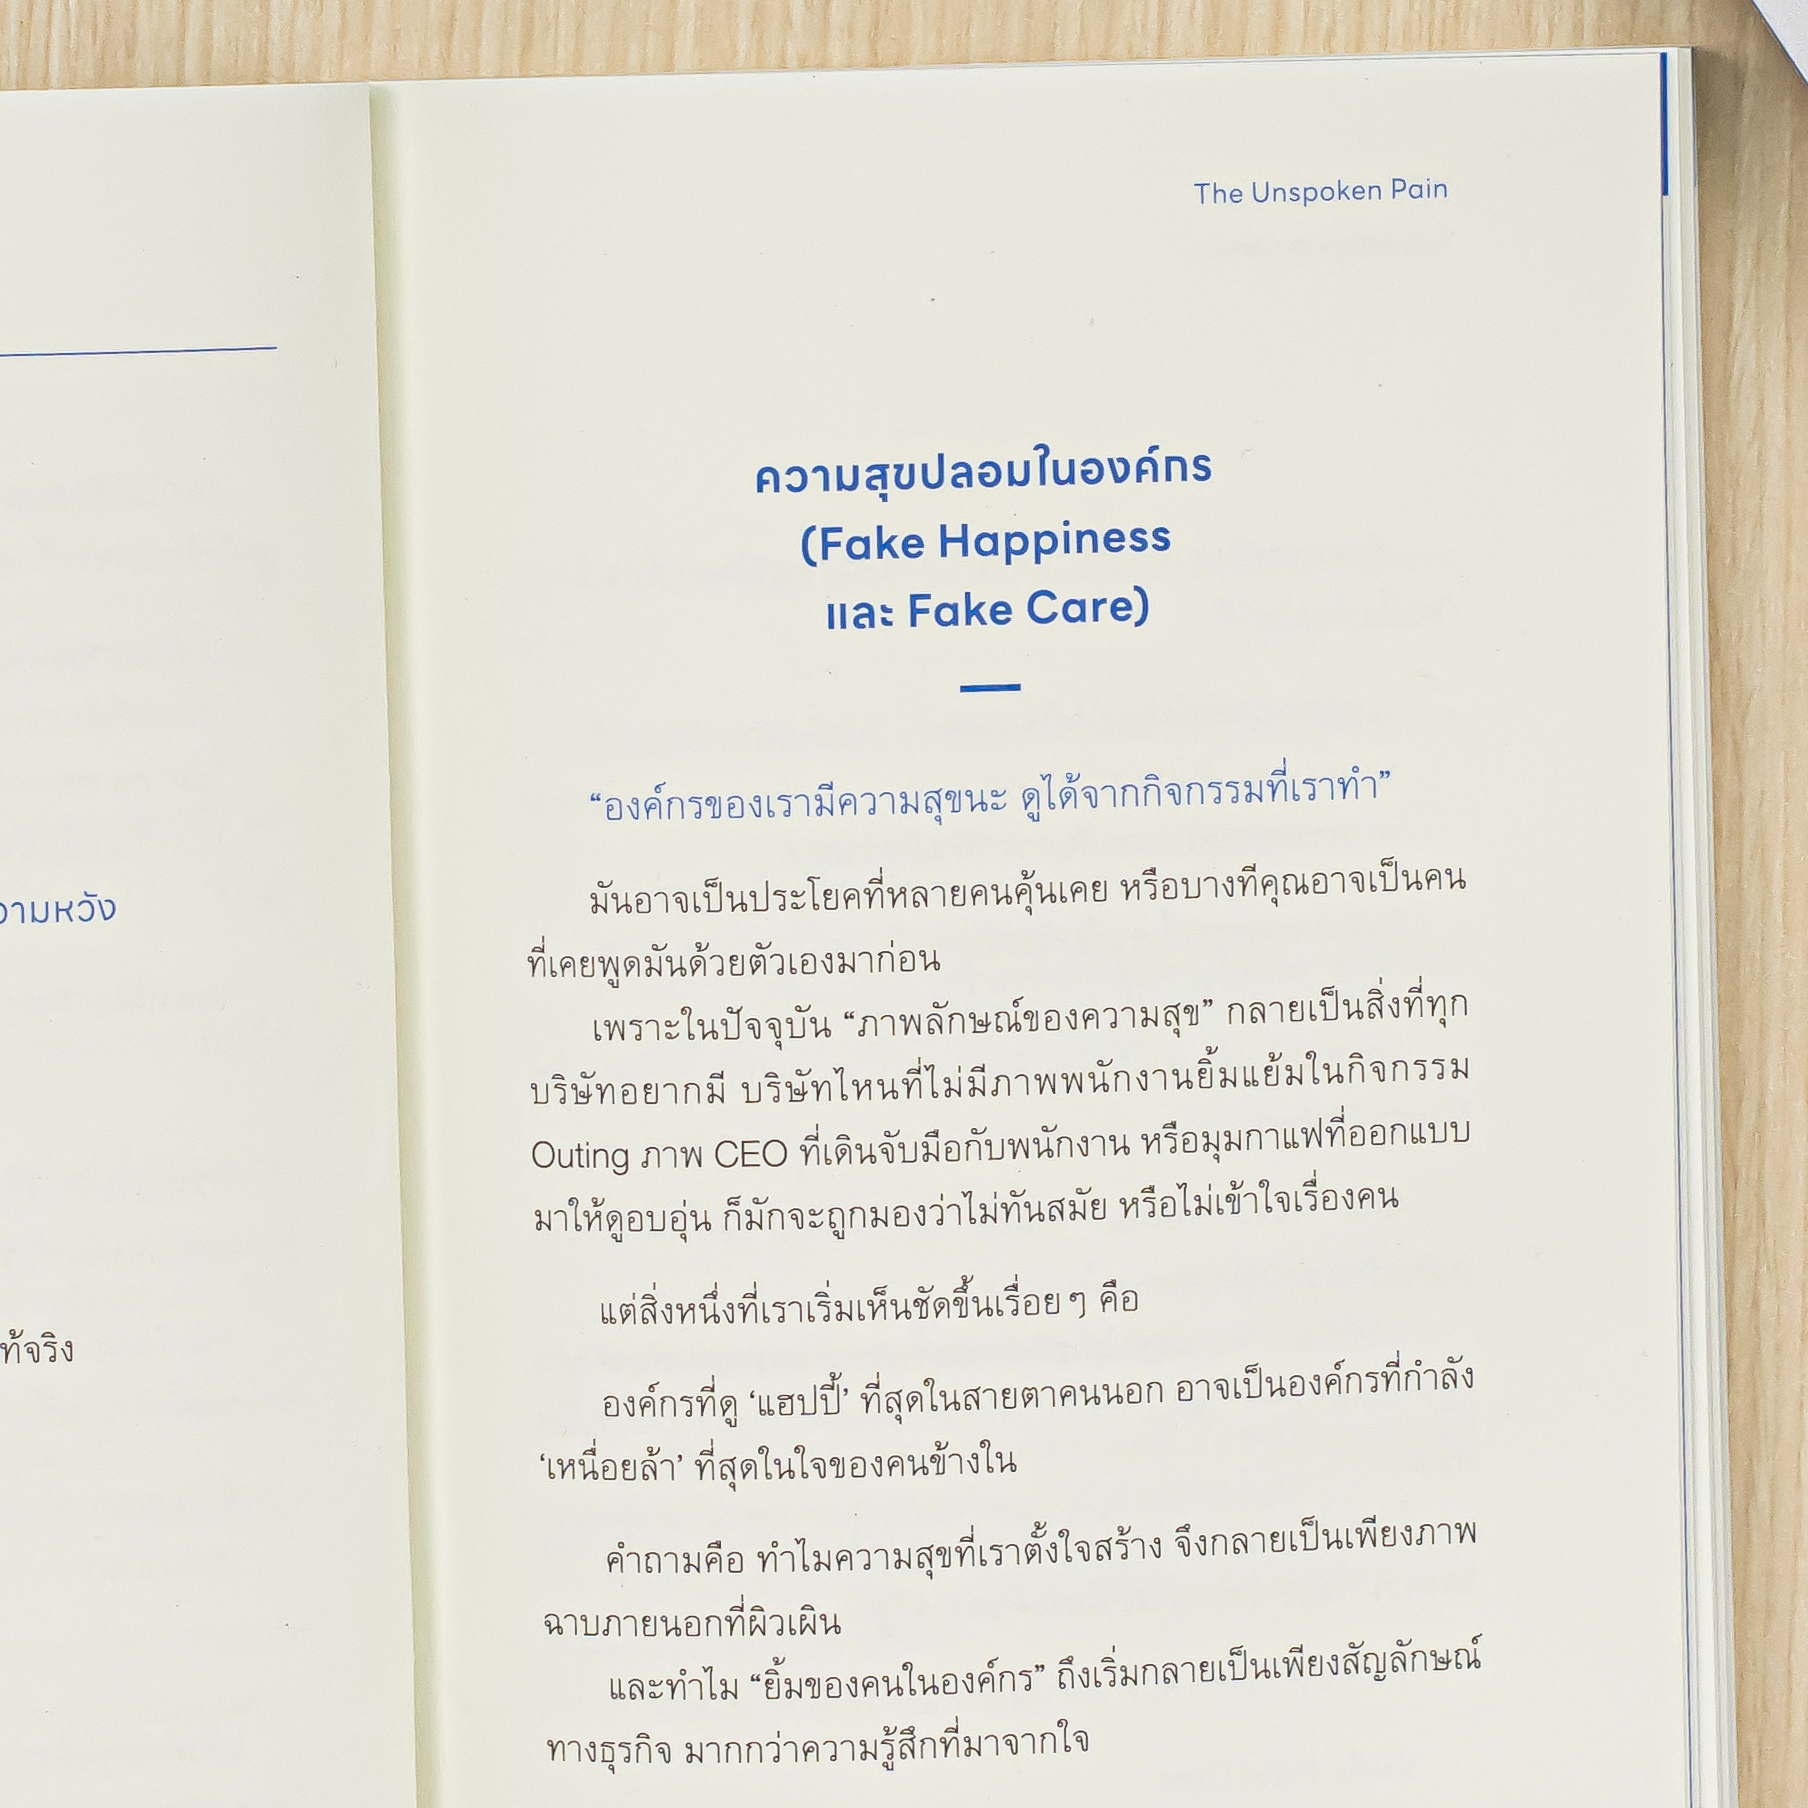 The Unspoken Pain
ความสุขปลอมในองค์กร
(Fake Happiness
และ Fake Care)
“องค์กรของเรามีความสุขนะ ดูได้จากกิจกรรมที่เราทำ”
มันอาจเป็นประโยคที่หลายคนคุ้นเคย หรือบางทีคุณอาจเป็นคน
ที่เคยพูดมันด้วยตัวเองมาก่อน
เพราะในปัจจุบัน “ภาพลักษณ์ของความสุข” กลายเป็นสิ่งที่ทุก
บริษัทอยากมี บริษัทไหนที่ไม่มีภาพพนักงานยิ้มแย้มในกิจกรรม
Outing ภาพ CEO ที่เดินจับมือกับพนักงาน หรือมุมกาแฟที่ออกแบบ
มาให้ดูอบอุ่น ก็มักจะถูกมองว่าไม่ทันสมัย หรือไม่เข้าใจเรื่องคน
แต่สิ่งหนึ่งที่เราเริ่มเห็นชัดขึ้นเรื่อยๆ คือ
องค์กรที่ดู ‘แฮปปี้’ ที่สุดในสายตาคนนอก อาจเป็นองค์กรที่กำลัง
‘เหนื่อยล้า’ ที่สุดในใจของคนข้างใน
คำถามคือ ทำไมความสุขที่เราตั้งใจสร้าง จึงกลายเป็นเพียงภาพ
ฉาบภายนอกที่ผิวเผิน
และทำไม “ยิ้มของคนในองค์กร” ถึงเริ่มกลายเป็นเพียงสัญลักษณ์
ทางธุรกิจ มากกว่าความรู้สึกที่มาจากใจ